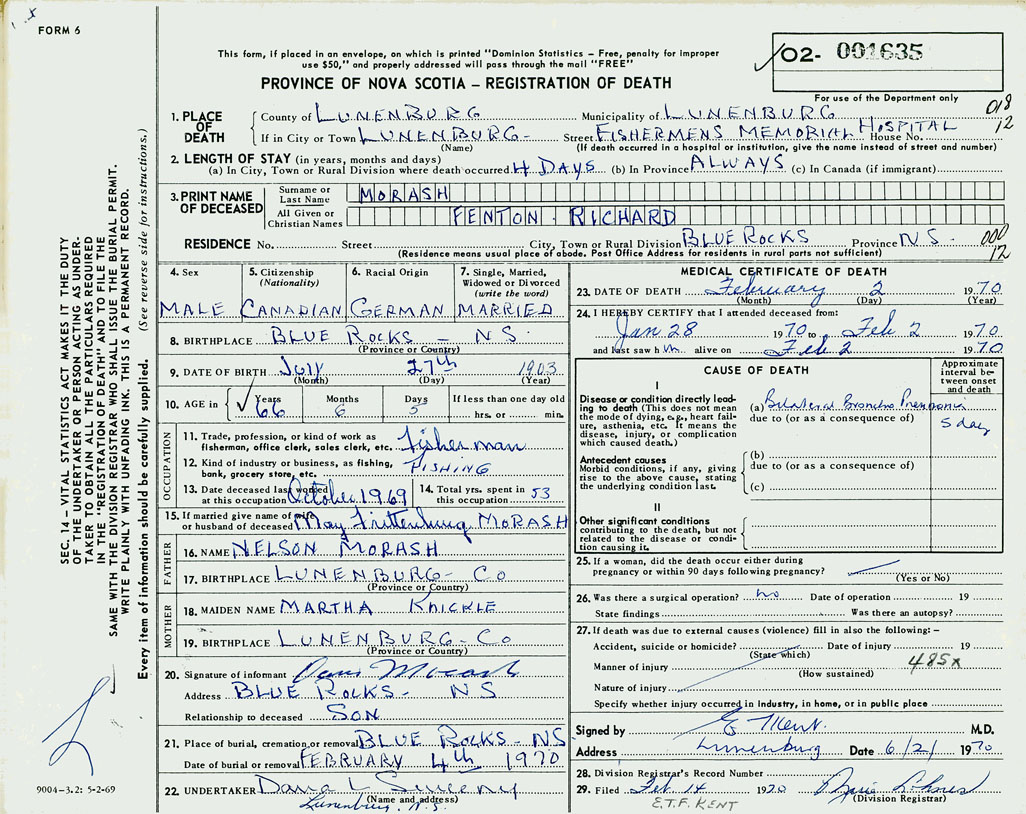 FORM 6
This form, if placed in an envelope, on which is printed "Dominion Statistics – Free, penalty for improper
use $50," and properly addressed will pass through the mail "FREE"
PROVINCE OF NOVA SCOTIA – REGISTRATION OF DEATH
02- 001635
For use of the Department only
018
12
1. PLACE OF DEATH
County of LUNENBURG Municipality of LUNENBURG
If in City or Town LUNENBURG- Street FISHERMENS MEMORIAL HOSPITAL House No.
(Name) (If death occurred in a hospital or institution, give the name instead of street and number)
2. LENGTH OF STAY (in years, months and days)
(a) In City, Town or Rural Division where death occurred 4 DAYS (b) In Province ALWAYS (c) In Canada (if immigrant)
3. PRINT NAME OF DECEASED
Surname or Last Name MORASH
All Given or Christian Names FENTON RICHARD
RESIDENCE No. Street City, Town or Rural Division BLUE ROCKS Province N S -
000
12
(Residence means usual place of abode. Post Office Address for residents in rural parts not sufficient)
4. Sex MALE
5. Citizenship (Nationality) CANADIAN
6. Racial Origin GERMAN
7. Single, Married, Widowed or Divorced (write the word) MARRIED
8. BIRTHPLACE BLUE ROCKS - NS
(Province or Country)
9. DATE OF BIRTH July 27th 1903
(Month) (Day) (Year)
10. AGE in Years 66 Months 6 Days 5 If less than one day old hrs. or min.
OCCUPATION
11. Trade, profession, or kind of work as fisherman, office clerk, sales clerk, etc. fisherman
12. Kind of industry or business, as fishing, bank, grocery store, etc. FISHING
13. Date deceased last worked at this occupation October 1969
14. Total yrs. spent in this occupation 53
15. If married give name of wife or husband of deceased May MORASH
FATHER
16. NAME NELSON MORASH
17. BIRTHPLACE LUNENBURG- CO
(Province or Country)
MOTHER
18. MAIDEN NAME MARTHA KNICKLE
19. BIRTHPLACE LUNENBURG- CO
(Province or Country)
20. Signature of informant Morash
Address BLUE ROCKS - NS
Relationship to deceased SON
21. Place of burial, cremation or removal BLUE ROCKS - NS
Date of burial or removal FEBRUARY 4th 1970
22. UNDERTAKER Dana L Sweeny
(Name and address)
Lunenburg, N.S.
MEDICAL CERTIFICATE OF DEATH
23. DATE OF DEATH February 2 1970
(Month) (Day) (Year)
24. I HEREBY CERTIFY that I attended deceased from:
Jan 28 1970 to Feb 2 1970
and last saw him alive on Feb 2 1970
CAUSE OF DEATH
Approximate interval between onset and death
I
Disease or condition directly leading to death (This does not mean the mode of dying, e.g., heart failure, asthenia, etc. It means the disease, injury, or complication which caused death.)
(a) Bilateral Broncho Pneumonia
due to (or as a consequence of)
5 day
Antecedent causes
Morbid conditions, if any, giving rise to the above cause, stating the underlying condition last.
(b)
due to (or as a consequence of)
(c)
II
Other significant conditions contributing to the death, but not related to the disease or condition causing it.
25. If a woman, did the death occur either during
pregnancy or within 90 days following pregnancy?
(Yes or No)
26. Was there a surgical operation? no Date of operation 19
State findings Was there an autopsy?
27. If death was due to external causes (violence) fill in also the following: –
Accident, suicide or homicide? Date of injury 19
(State which)
485x
Manner of injury
(How sustained)
Nature of injury
Specify whether injury occurred in industry, in home, or in public place
Signed by E Kent. M.D.
Address Lunenburg Date 6/2/ 1970
28. Division Registrar's Record Number
29. Filed Feb. 14 1970
(Division Registrar)
E.T.F. KENT
SEC. 14 – VITAL STATISTICS ACT MAKES IT THE DUTY
OF THE UNDERTAKER OR PERSON ACTING AS UNDER-
TAKER TO OBTAIN ALL THE PARTICULARS REQUIRED
IN THE "REGISTRATION OF DEATH" AND TO FILE THE
SAME WITH THE DIVISION REGISTRAR WHO SHALL ISSUE THE BURIAL PERMIT.
WRITE PLAINLY WITH UNFADING INK. THIS IS A PERMANENT RECORD.
Every item of information should be carefully supplied. (See reverse side for instructions.)
9004-3.2: 5-2-69